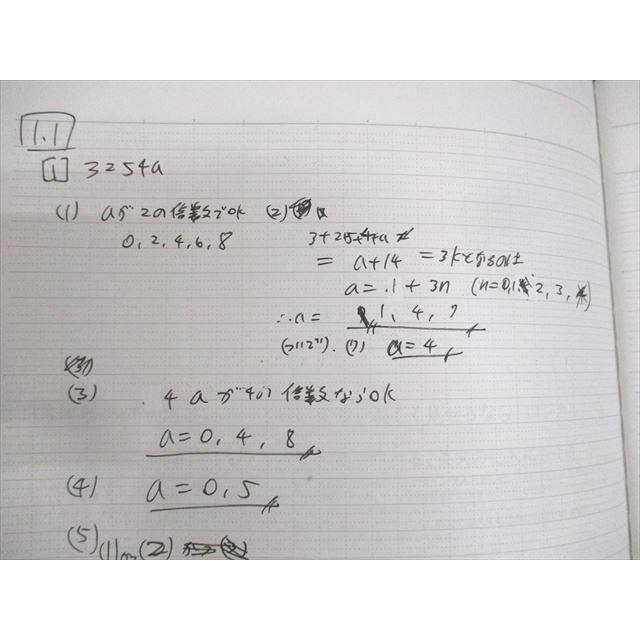 1.1
[1] 3254a
(1) aが2の倍数でOK
0, 2, 4, 6, 8
(2)
3+2+5+4+a
= a+14 = 3kとなるのは
a = 1 + 3n (n=0,1, 2, 3, )
∴a = 1, 4, 7
(ついで). (7) a = 4
(3) 4aが4の倍数ならOK
a = 0, 4, 8
(4) a = 0, 5
(5) (1) (2)